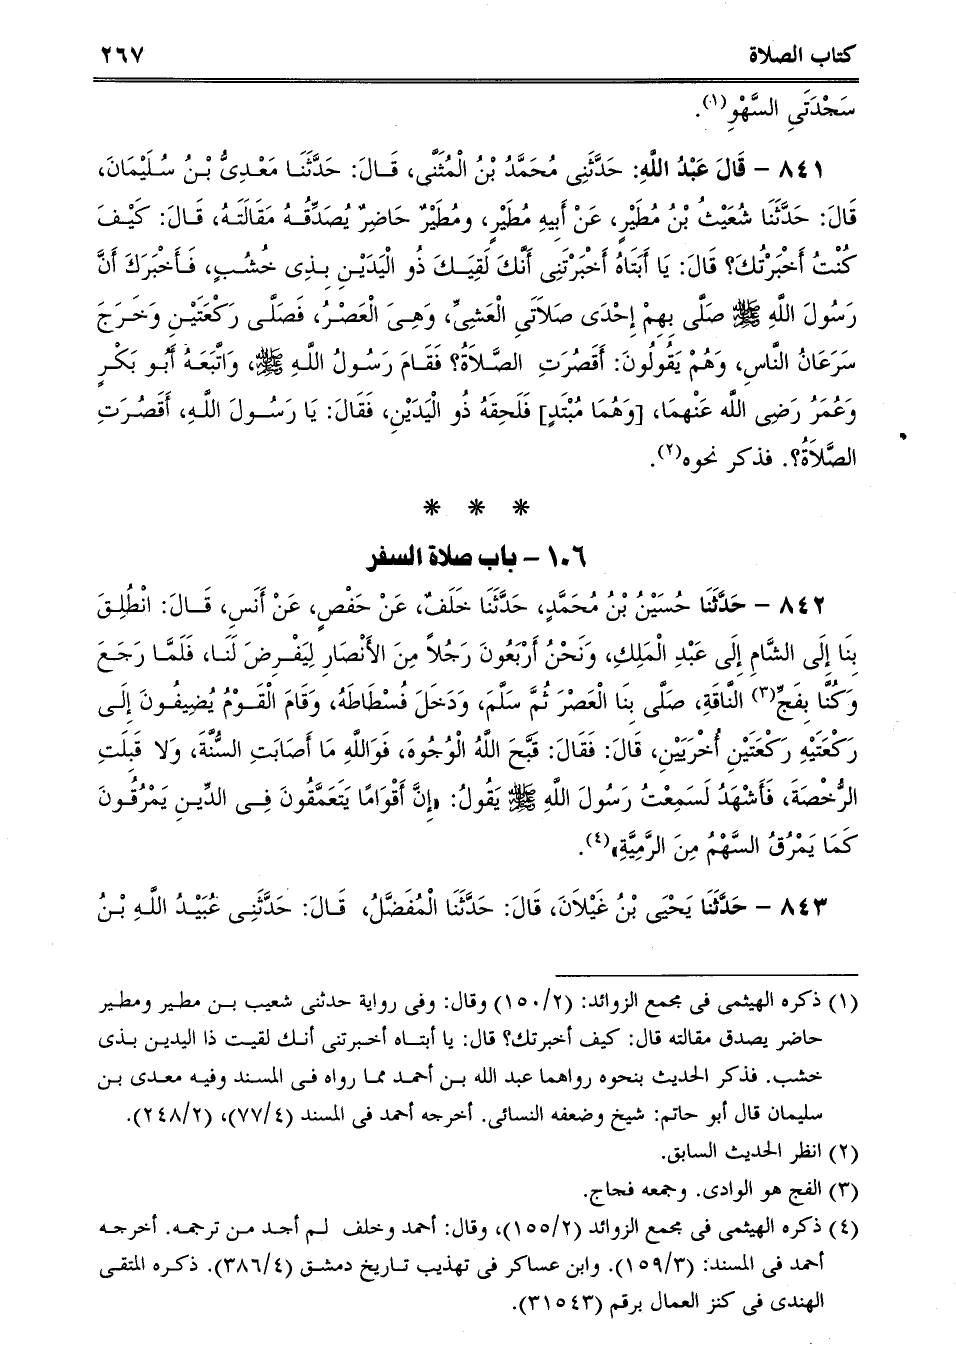 كتاب الصلاة ٢٦٧
سَجْدَتَىِ السَّهْوِ(١).
٨٤١ – قَالَ عَبْدُ اللَّهِ: حَدَّثَنِى مُحَمَّدُ بْنُ الْمُثَنَّى، قَالَ: حَدَّثَنَا مَعْدِىُّ بْنُ سُلَيْمَانَ،
قَالَ: حَدَّثَنَا شُعَيْثُ بْنُ مُطَيْرٍ، عَنْ أَبِيهِ مُطَيْرٍ، ومُطَيْرٌ حَاضِرٌ يُصَدِّقُهُ مَقَالَتَهُ، قَالَ: كَيْفَ
كُنْتُ أَخبَرْتُكَ؟ قَالَ: يَا أَبَتَاهُ أَخبَرْتَنِى أَنَّكَ لَقِيَكَ ذُو الْيَدَيْنِ بِذِى خُشُبٍ، فَأَخْبَرَكَ أَنَّ
رَسُولَ اللَّهِ ﷺ صَلَّى بِهِمْ إِحْدَى صَلاَتَىِ الْعَشِىِّ، وَهِىَ الْعَصْرُ، فَصَلَّى رَكْعَتَيْنِ وَخَرَجَ
سَرَعَانُ النَّاسِ، وَهُمْ يَقُولُونَ: أَقَصُرَتِ الصَّلاَةُ؟ فَقَامَ رَسُولُ اللَّهِ ﷺ، وَاتَّبَعَهُ أَبُو بَكْرٍ
وَعُمَرُ رَضِى اللَّه عَنْهمَا، [وَهُمَا مُبْتَدٍ] فَلَحِقَهُ ذُو الْيَدَيْنِ، فَقَالَ: يَا رَسُولَ اللَّهِ، أَقَصُرَتِ
الصَّلاَةُ؟. فذكر نحوه(٢).
* * *
١٠٦ – باب صلاة السفر
٨٤٢ – حَدَّثَنَا حُسَيْنُ بْنُ مُحَمَّدٍ، حَدَّثَنَا خَلَفٌ، عَنْ حَفْصٍ، عَنْ أَنَسٍ، قَالَ: انْطُلِقَ
بِنَا إِلَى الشَّامِ إِلَى عَبْدِ الْمَلِكِ، وَنَحْنُ أَرْبَعُونَ رَجُلاً مِنَ الأَنْصَارِ لِيَفْرِضَ لَنَا، فَلَمَّا رَجَعَ
وَكُنَّا بِفَجِّ(٣) النَّاقَةِ، صَلَّى بِنَا الْعَصْرَ ثُمَّ سَلَّمَ، وَدَخَلَ فُسْطَاطَهُ، وَقَامَ الْقَوْمُ يُضِيفُونَ إِلَى
رَكْعَتَيْهِ رَكْعَتَيْنِ أُخْرَيَيْنِ، قَالَ: فَقَالَ: قَبَّحَ اللَّهُ الْوُجُوهَ، فَوَاللَّهِ مَا أَصَابَتِ السُّنَّةَ، وَلا قَبِلَتِ
الرُّخْصَةَ، فَأَشْهَدُ لَسَمِعْتُ رَسُولَ اللَّهِ ﷺ يَقُولُ: «إِنَّ أَقْوَامًا يَتَعَمَّقُونَ فِى الدِّينِ يَمْرُقُونَ
كَمَا يَمْرُقُ السَّهْمُ مِنَ الرَّمِيَّةِ»(٤).
٨٤٣ – حَدَّثَنَا يَحْيَى بْنُ غَيْلاَنَ، قَالَ: حَدَّثَنَا الْمُفَضَّلُ، قَالَ: حَدَّثَنِى عُبَيْدُ اللَّهِ بْنُ
(١) ذكره الهيثمى فى مجمع الزوائد: (٢/ ١٥٠) وقال: وفى رواية حدثنى شعيب بن مطير ومطير
حاضر يصدق مقالته قال: كيف أخبرتك؟ قال: يا أبتاه أخبرتنى أنك لقيت ذا اليدين بذى
خشب. فذكر الحديث بنحوه رواهما عبد الله بن أحمد مما رواه فى المسند وفيه معدى بن
سليمان قال أبو حاتم: شيخ وضعفه النسائى. أخرجه أحمد فى المسند (٤/ ٧٧)، (٢/ ٢٤٨).
(٢) انظر الحديث السابق.
(٣) الفج هو الوادى. وجمعه فجاج.
(٤) ذكره الهيثمى فى مجمع الزوائد (٢/ ١٥٥)، وقال: أحمد وخلف لم أجد من ترجمه. أخرجه
أحمد فى المسند: (٣/ ١٥٩). وابن عساكر فى تهذيب تاريخ دمشق (٤/ ٣٨٦). ذكره المتقى
الهندى فى كنز العمال برقم (٣١٥٤٣).